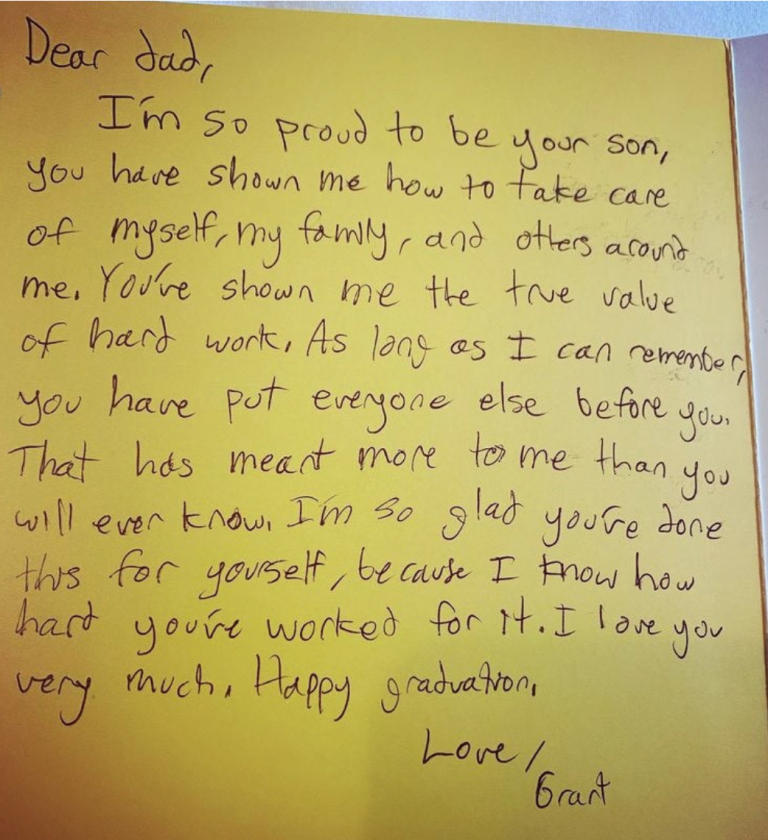 Dear dad,
I'm so proud to be your son,
you have shown me how to take care
of myself, my family, and others around
me. You've shown me the true value
of hard work. As long as I can remember,
you have put everyone else before you.
That has meant more to me than you
will ever know. I'm so glad you've done
this for yourself, because I know how
hard you've worked for it. I love you
very much. Happy graduation.
Love,
Grant